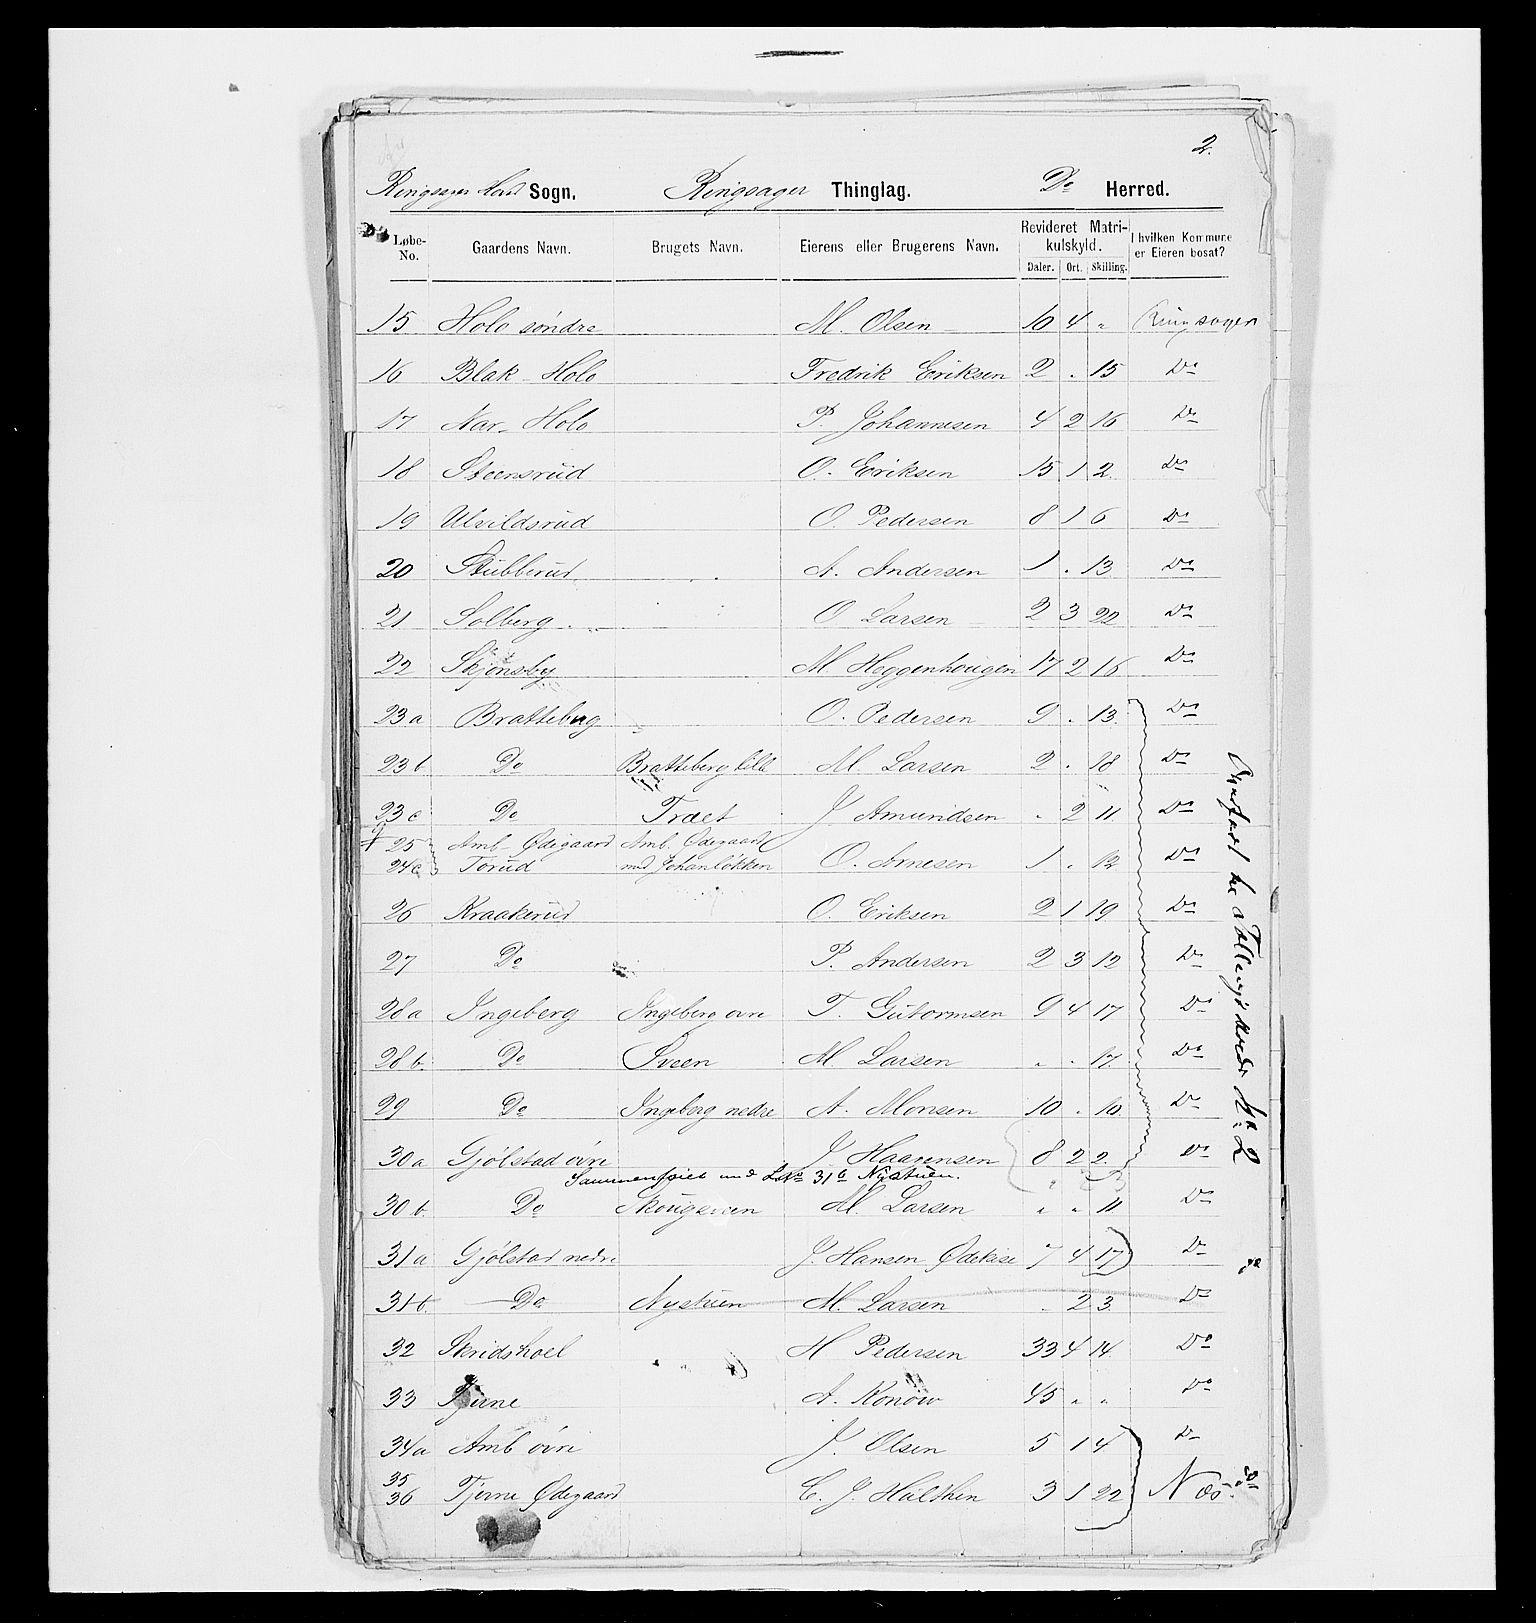 2.
Ringsager Hoved Sogn. Ringsager Thinglag. Do Herred.
Løbe-No. Gaardens Navn. Brugets Navn. Eierens eller Brugerens Navn. Revideret Matrikulskyld. Daler. Ort. Skilling. I hvilken Kommune er Eieren bosat?
15 Holo søndre M. Olsen 10 4 " Ringsager
16 Blak-Holo Fredrik Eriksen 2 . 15 Do
17 Nar-Holo P. Johannesen 4 2 16 Do
18 Steensrud O. Eriksen 15 1 2 Do
19 Ulvildsrud O. Pedersen 8 1 6 Do
20 Stubberud A. Andersen 1 . 13 Do
21 Solberg O Larsen 2 3 22 Do
22 Skjønsby M. Heggenhougen 17 2 16 Do
23a Bratteberg O. Pedersen 9 . 13 Do
23b Do Bratteberg lille M. Larsen 2 . 18 Do
23c Do Træet J Amundsen " 2 11 Do
25 Amb-Ødegaard Amb. Ødegaard
24c Torud med Johanløkken O. Arnesen 1 . 12 Do
26 Kraakerud O. Eriksen 2 1 19 Do
27 Do P. Andersen 2 3 12 Do
28a Ingeberg Ingeberg øvre T. Gutormsen 9 4 17 Do
28b. Do Sveen M. Larsen " . 17. Do
29 Do Ingeberg nedre A. Monsen 10 . 10 Do
30a Gjølstad øvre J Haarensen 8 2 2 Do
Sammenføiet med LNo 31b Nystuen.
30b. Do Skougsveen M. Larsen " " 11 Do
31a Gjølstad nedre J. Hansen Ødekise 7 4 17 Do
31b. Do Nystuen M. Larsen . 2 3 Do
32 Skridshoel H Pedersen 33 4 14 Do
33 Tjerne A. Konow 45 " " Do
34a Amb øvre J. Olsen 5 1 4 Do
35
36 Tjerne Ødegaard C. J. Hulthin 3 1 22 Næs.
No 2